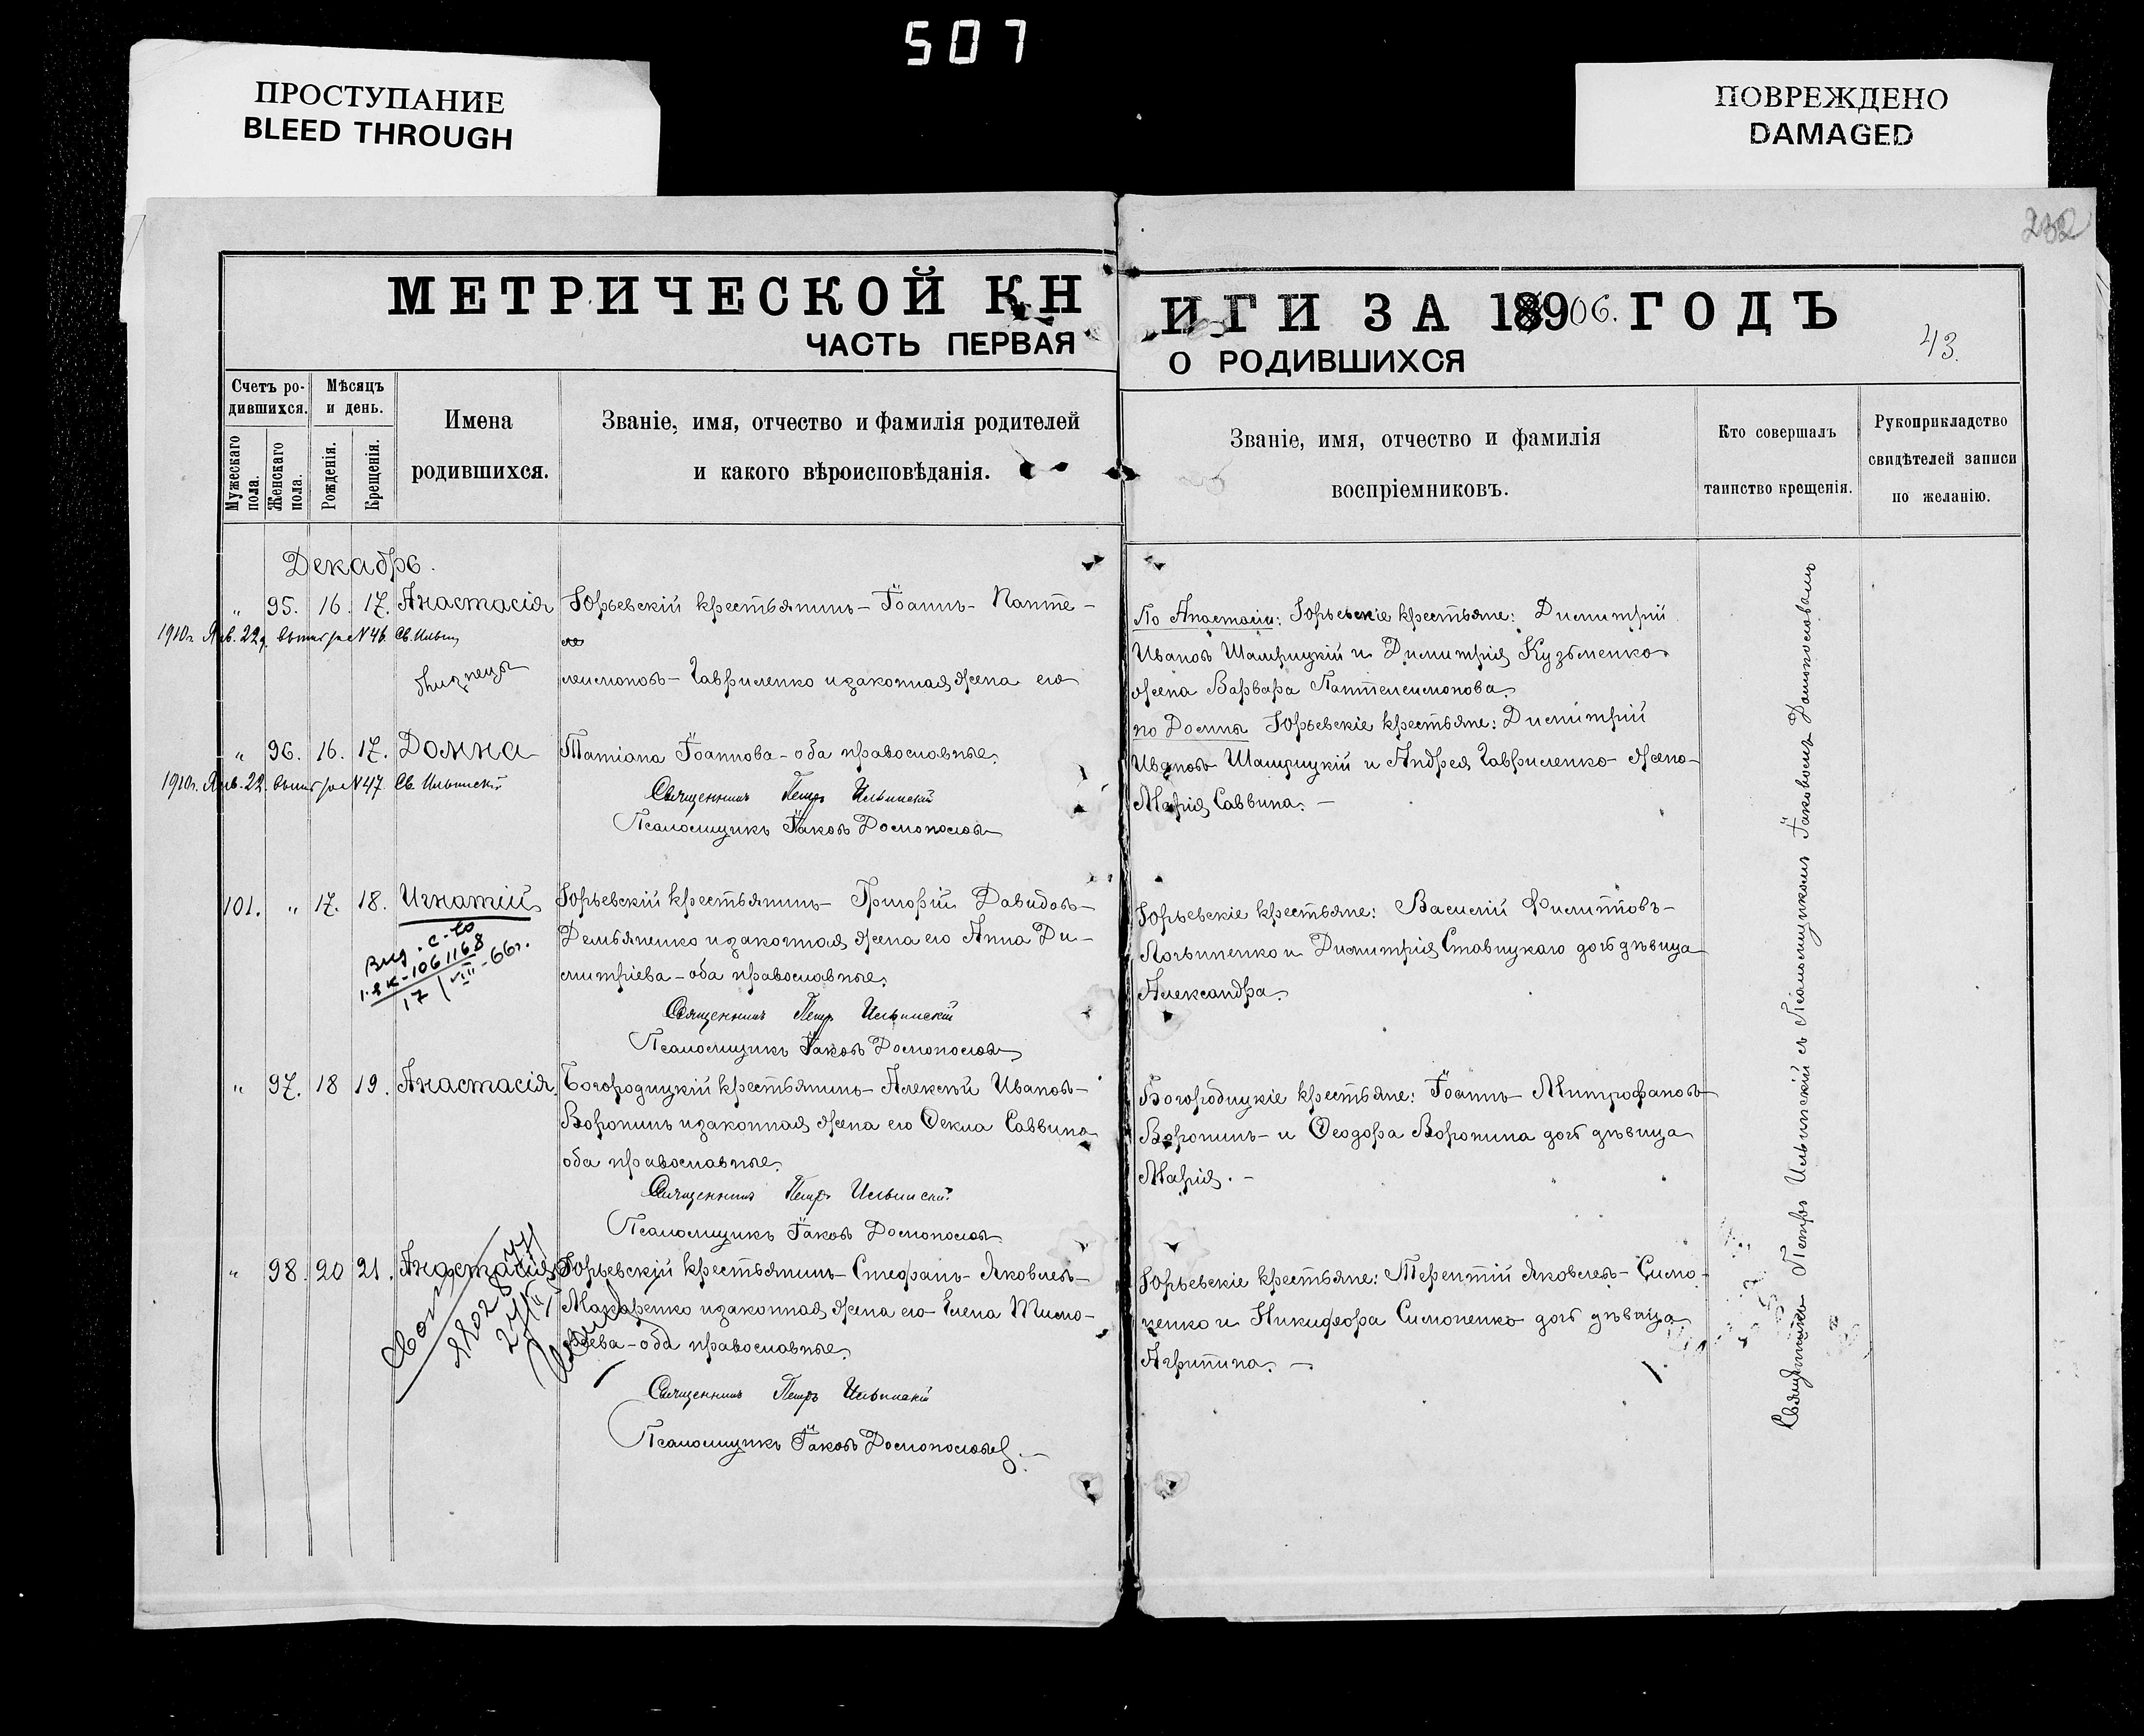 507
ПРОСТУПАНИЕ
BLEED THROUGH
ПОВРЕЖДЕНО
DAMAGED
232
МЕТРИЧЕСКОЙ КН
ЧАСТЬ ПЕРВАЯ
Счетъ ро-
дившихся.
Мужескаго пола.
Женскаго пола.
Мѣсяцъ
и день.
Рожденія.
Крещенія.
Имена
родившихся.
Званіе, имя, отчество и фамилія родителей
и какого вѣроисповѣданія.
Декабрь.
" 95. 16. 17. Анастасія Юрьевскій крестьянинъ - Іоаннъ - Панте-
1910г. Янв. 22 № 46. Св. Ильин
близнецы
леимоновъ - Гавриленко и законная жена его
" 96. 16. 17. Домна Татіана Іоаннова - оба православные.
1910г. Янв. 22. № 47 Св. Ильинскій
Священникъ Петръ Ильинскій
Псаломщикъ Іаковъ Домонослов
101. " 17. 18. Игнатій Юрьевскій крестьянинъ - Григорій Давидовъ -
Демьяненко и законная жена его Анна Ди-
митріева - оба православные.
Выд. с-во
1-ЯК-1061168
17/VIII-66г.
Священникъ Петръ Ильинскій
Псаломщикъ Іаковъ Домонослов
" 97. 18 19. Анастасія. Богородицкій крестьянинъ - Алексѣй Ивановъ -
Воронинъ и законная жена его Ѳекла Саввина
оба православные.
Священникъ Петръ Ильинскій
Псаломщикъ Іаковъ Домонослов
" 98. 20 21. Анастасія Юрьевскій крестьянинъ - Стефанъ - Яковлевъ -
Макаренко и законная жена его - Елена Тимо-
ѳеева - оба православные.
Священникъ Петръ Ильинскій
Псаломщикъ Іаковъ Домонослов
ИГИ ЗА 18906. ГОДЪ
О РОДИВШИХСЯ
43.
Званіе, имя, отчество и фамилія
воспріемниковъ.
Кто совершалъ
таинство крещенія.
Рукоприкладство
свидѣтелей записи
по желанію.
По Анастасіи: Юрьевскіе крестьяне: Димитрій
Ивановъ Шамрицкій и Димитрія Кузьменко
жена Варвара Пантелеимонова.
по Домны Юрьевскіе крестьяне: Димитрій
Ивановъ Шамрицкій и Андрея Гавриленко жена -
Марія Саввина. -
Юрьевскіе крестьяне: Василій Филипповъ -
Логвиненко и Димитрія Ставицкаго дочь дѣвица
Александра.
Богородицкіе крестьяне: Іоаннъ Митрофановъ
Воронинъ - и Ѳеодора Воронина дочь дѣвица
Марія. -
Юрьевскіе крестьяне: Терентій Яковлевъ - Симо-
ненко и Никифора Симоненко дочь дѣвица
Агрипина. -
Священникъ Петръ Ильинскій съ Псаломщикомъ Іаковомъ Домонословымъ